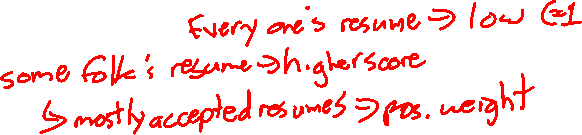 Every one's resume => low (=1
some folk's resume => higher score
↳ mostly accepted resumes => pos. weight